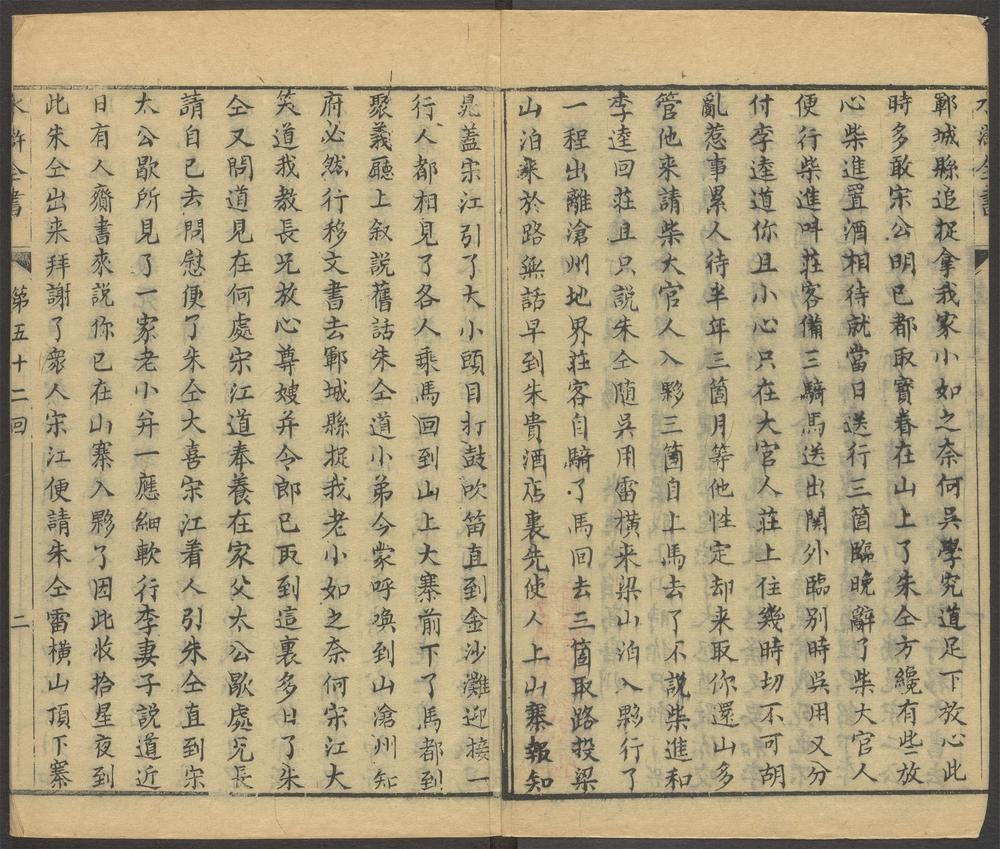 鄆城縣追捉拿我家小如之奈何吳學究道足下放心此
時多敢宋公明已都取寳眷在山上了朱仝方纔有些放
心柴進置酒相待就當日送行三箇臨晚辭了柴大官人
便行柴進呌莊客備三騎馬送出関外臨别時吳用又分
付李逵道你且小心只在大官人莊上住幾時切不可胡
亂惹事累人待半年三箇月等他性定却来取你還山多
管他来請柴大官人入夥三箇自上馬去了不說柴進和
李逵回莊且只說朱仝随吳用雷横来梁山泊入夥行了
一程出離滄州地界莊客自騎了馬回去三箇取路投梁
山泊来於路無話早到朱貴酒店裏先使人上山寨報知
晁蓋宋江引了大小頭目打鼓吹笛直到金沙灘迎接一
行人都相見了各人乘馬回到山上大寨前下了馬都到
聚義廳上叙說舊話朱仝道小弟今蒙呼喚到山滄州知
府必然行移文書去鄆城縣捉我老小如之奈何宋江大
笑道我教長兄放心尊嫂并令郎已取到這裏多日了朱
仝又問道見在何處宋江道奉養在家父太公歇處兄長
請自己去問慰便了朱仝大喜宋江着人引朱仝直到宋
太公歇所見了一家老小并一應細軟行李妻子說道近
日有人齎書來說你已在山寨入夥了因此收拾星夜到
此朱仝出来拜謝了衆人宋江便請朱仝雷横山頂下寨
水滸全書
第五十二回
二